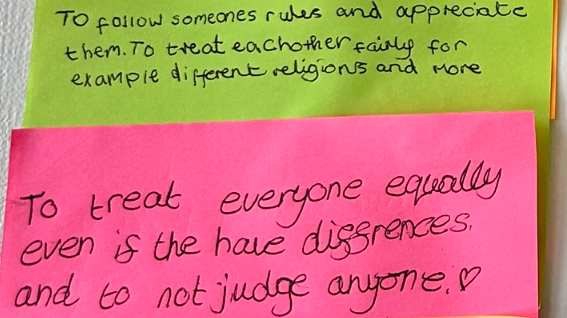 TO follow someones rules and appreciate
them. To treat eachother fairly for
example different religions and more
To treat everyone equally
even if the have diffrences.
and to not judge anyone. ♡